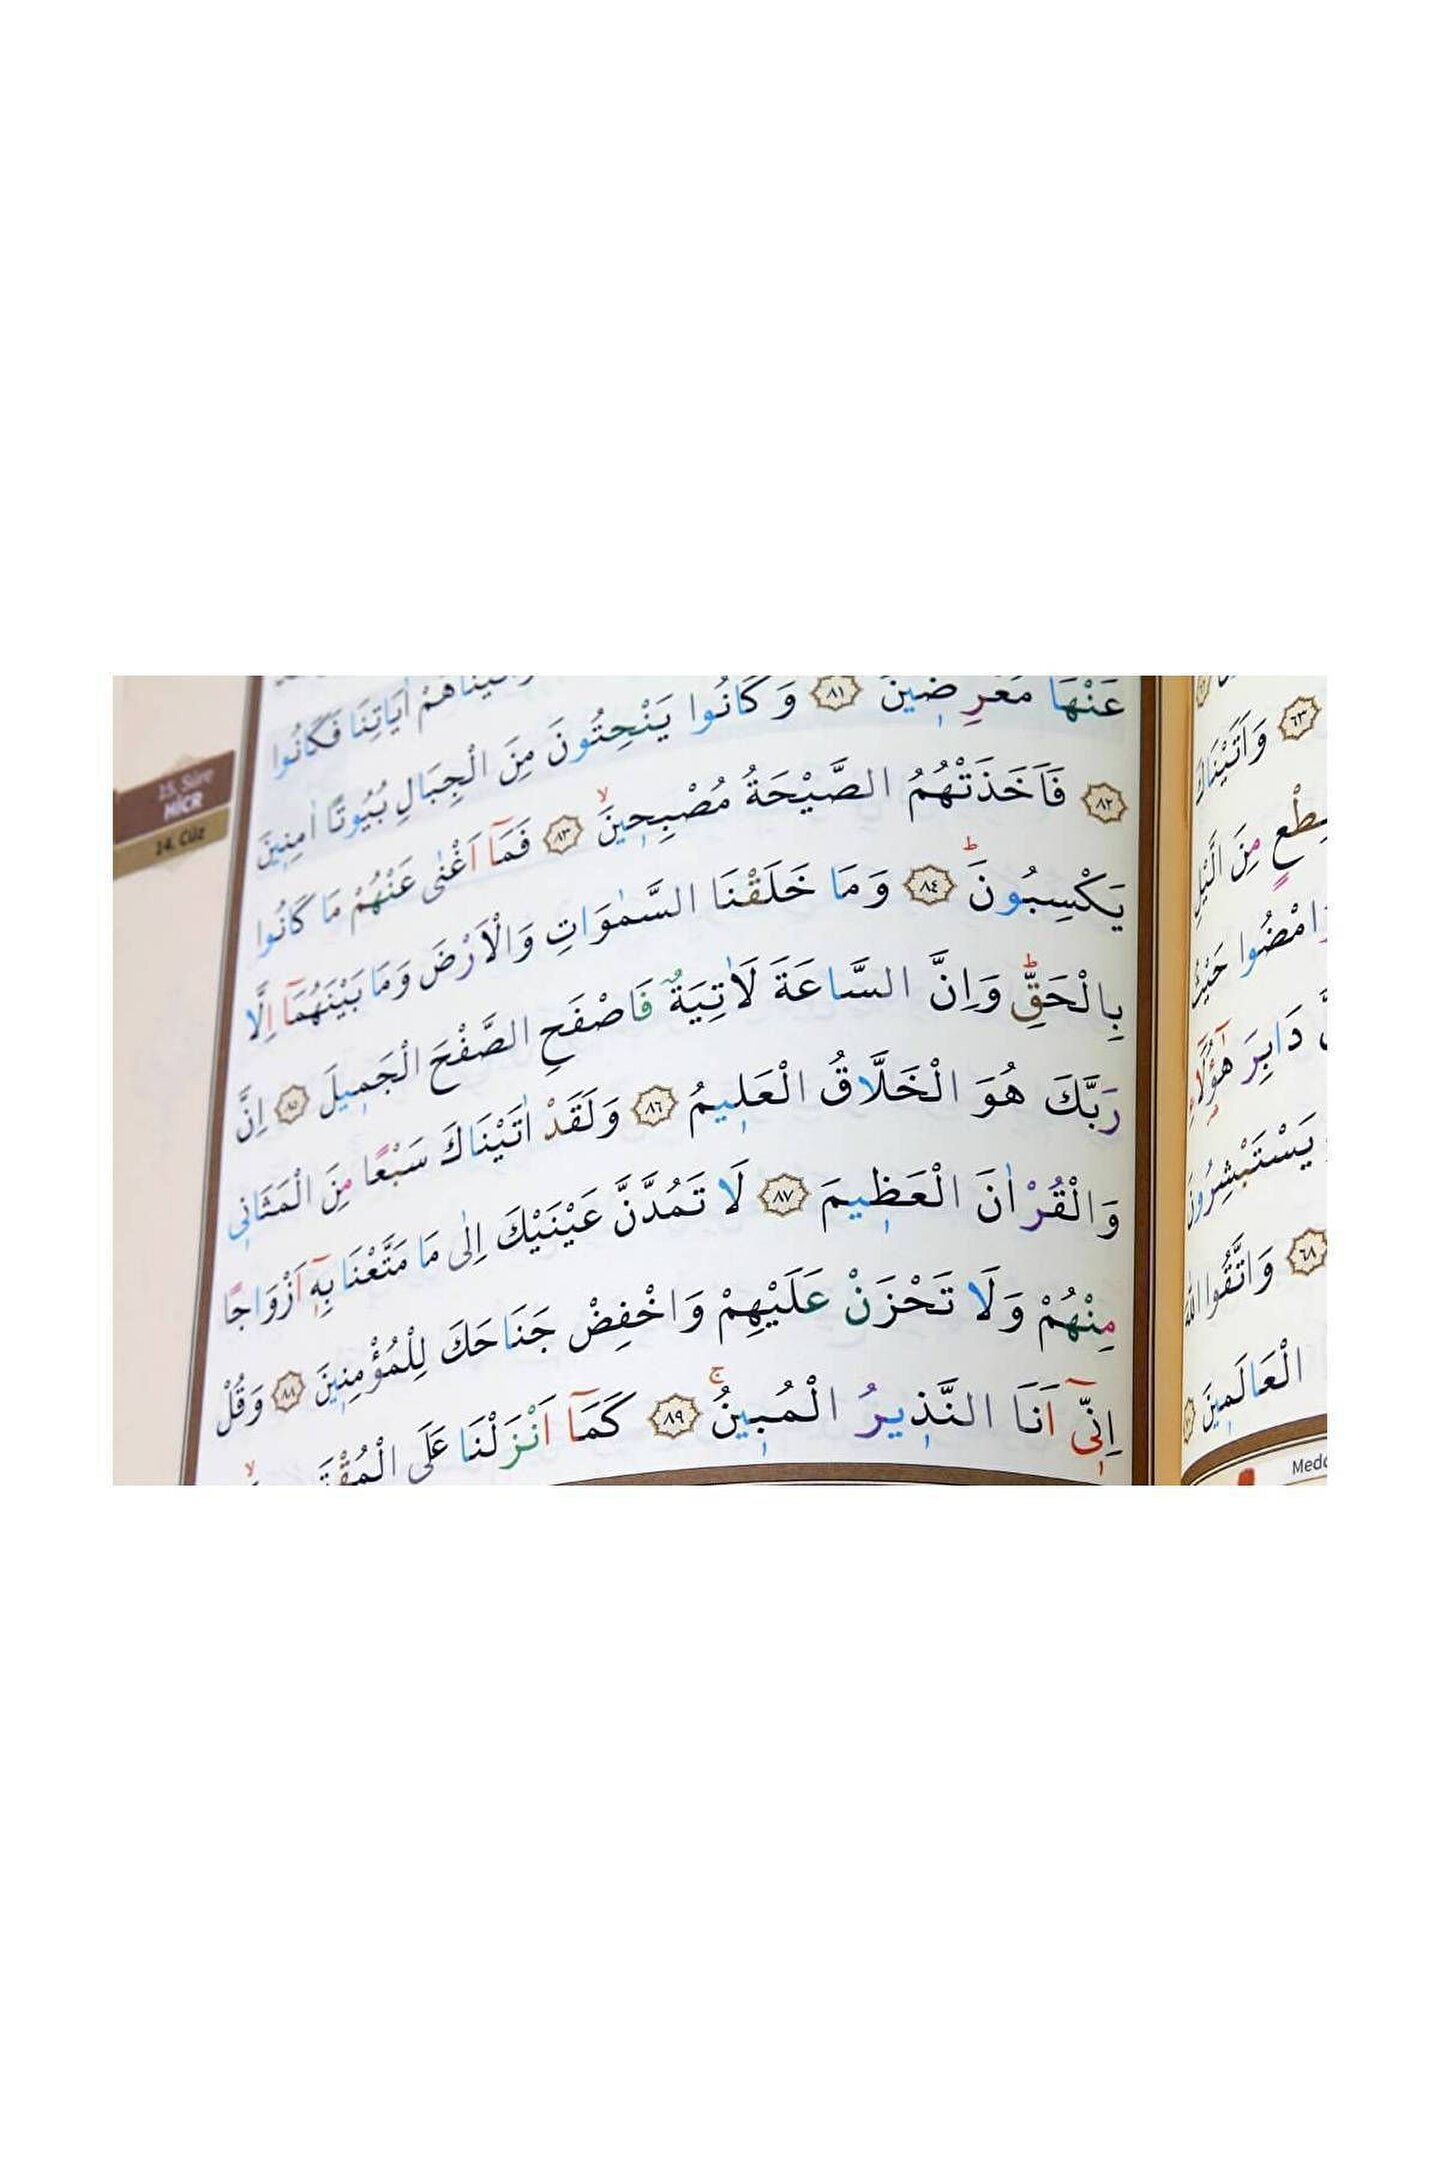 اٰيَاتِنَا فَكَانُوا
عَنْهَا مُعْرِضٖينَ ﴿٨١﴾ وَكَانُوا يَنْحِتُونَ مِنَ الْجِبَالِ بُيُوتًا اٰمِنٖينَ
﴿٨٢﴾ فَاَخَذَتْهُمُ الصَّيْحَةُ مُصْبِحٖينَۙ ﴿٨٣﴾ فَمَٓا اَغْنٰى عَنْهُمْ مَا كَانُوا
يَكْسِبُونَؕ ﴿٨٤﴾ وَمَا خَلَقْنَا السَّمٰوَاتِ وَالْاَرْضَ وَمَا بَيْنَهُمَٓا اِلَّا
بِالْحَقِّؕ وَاِنَّ السَّاعَةَ لَاٰتِيَةٌ فَاصْفَحِ الصَّفْحَ الْجَمٖيلَ ﴿٨٥﴾ اِنَّ
رَبَّكَ هُوَ الْخَلَّاقُ الْعَلٖيمُ ﴿٨٦﴾ وَلَقَدْ اٰتَيْنَاكَ سَبْعًا مِنَ الْمَثَانٖى
وَالْقُرْاٰنَ الْعَظٖيمَ ﴿٨٧﴾ لَا تَمُدَّنَّ عَيْنَيْكَ اِلٰى مَا مَتَّعْنَا بِهٖٓ اَزْوَاجًا
مِنْهُمْ وَلَا تَحْزَنْ عَلَيْهِمْ وَاخْفِضْ جَنَاحَكَ لِلْمُؤْمِنٖينَ ﴿٨٨﴾ وَقُلْ
اِنّٖٓى اَنَا النَّذٖيرُ الْمُبٖينُۚ ﴿٨٩﴾ كَمَٓا اَنْزَلْنَا عَلَى
15. Sûre
HİCR
14. Cüz
﴿٦٣﴾ وَاَتَيْنَاكَ
مِنَ الَّيْلِ
وَامْضُوا حَيْثُ
دَابِرَ
يَسْتَبْشِرُونَ
﴿٦٨﴾ وَاتَّقُوا اللّٰهَ
الْعَالَمٖينَ